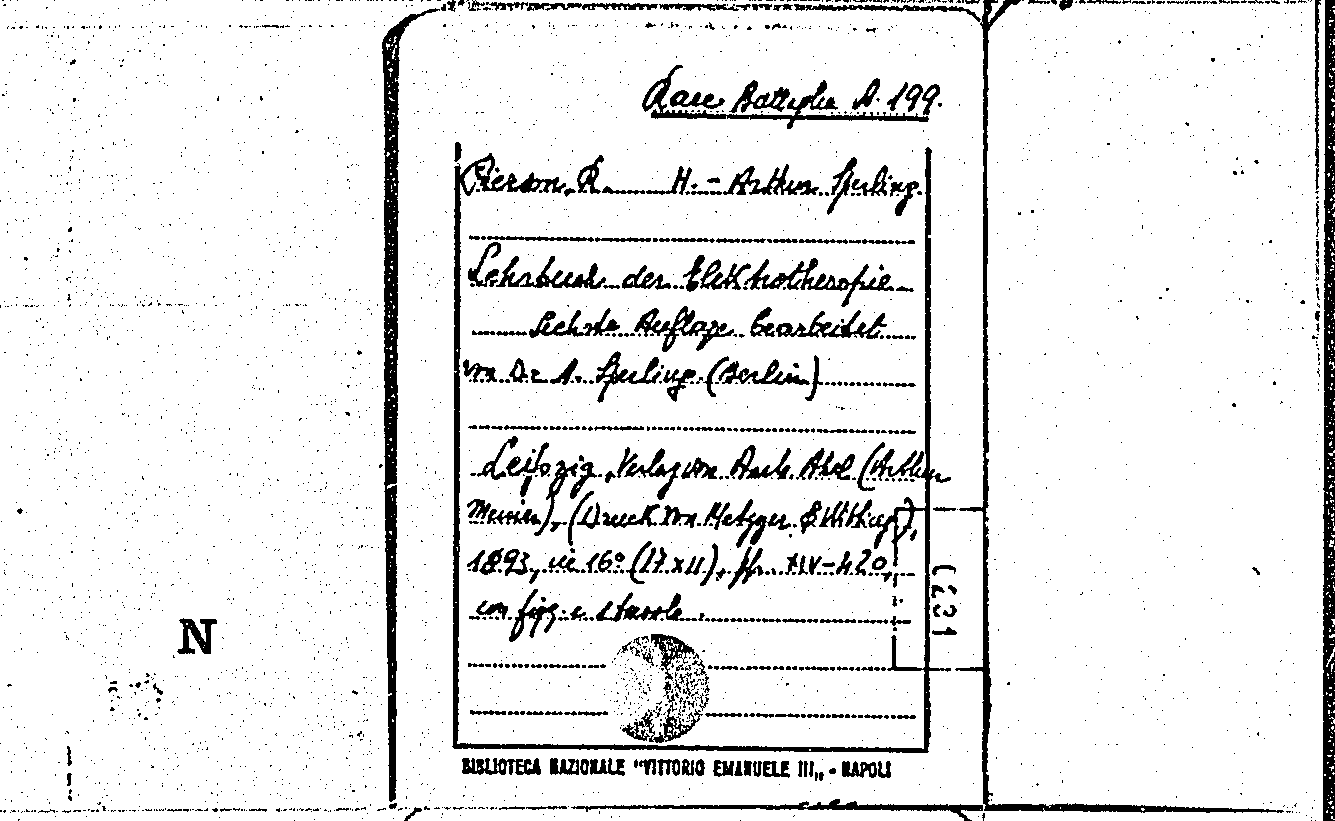 Race Battaglia A. 199.
Pierson, R. H. - Arthur Sperling.
Lehrbuch der Elektrotherapie
Sechste Auflage bearbeitet
von Dr A. Sperling (Berlin)
Leipzig, Verlag von Amb. Abel (Arthur
Meiner), (Druck von Metzger & Wittig),
1893, in 16º (17x11), pp. XIV-420,
con figg. e 1 tavole.
N
BIBLIOTECA NAZIONALE "VITTORIO EMANUELE III„ - NAPOLI